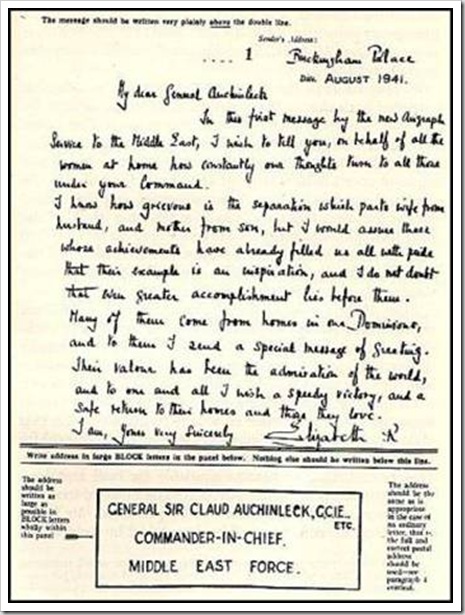 The message should be written very plainly above the double line.
Sender's Address:
.... 1 Buckingham Palace
Date AUGUST 1941.
My dear General Auchinleck
In this first message by the new Airgraph
Service to the Middle East, I wish to tell you, on behalf of all the
women at home how constantly our thoughts turn to all those
under your Command.
I know how grievous is the separation which parts wife from
husband, and mother from son, but I would assure those
whose achievements have already filled us all with pride
that their example is an inspiration, and I do not doubt
that even greater accomplishment lies before them.
Many of them come from homes in our Dominions,
and to them I send a special message of Greeting.
Their valour has been the admiration of the world,
and to one and all I wish a speedy victory, and a
safe return to their homes and those they love.
I am, Yours very Sincerely Elizabeth R
Write address in large BLOCK letters in the panel below. Nothing else should be written below this line.
The address
should be
written as
large as
possible in
BLOCK letters
wholly within
this panel
GENERAL SIR CLAUD AUCHINLECK, G.C.I.E.,
ETC.
COMMANDER-IN-CHIEF.
MIDDLE EAST FORCE.
The address
should be the
same as is
appropriate
in the case of
an ordinary
letter,
the full and
correct postal
address
should be
used—see
paragraph 4
overleaf.